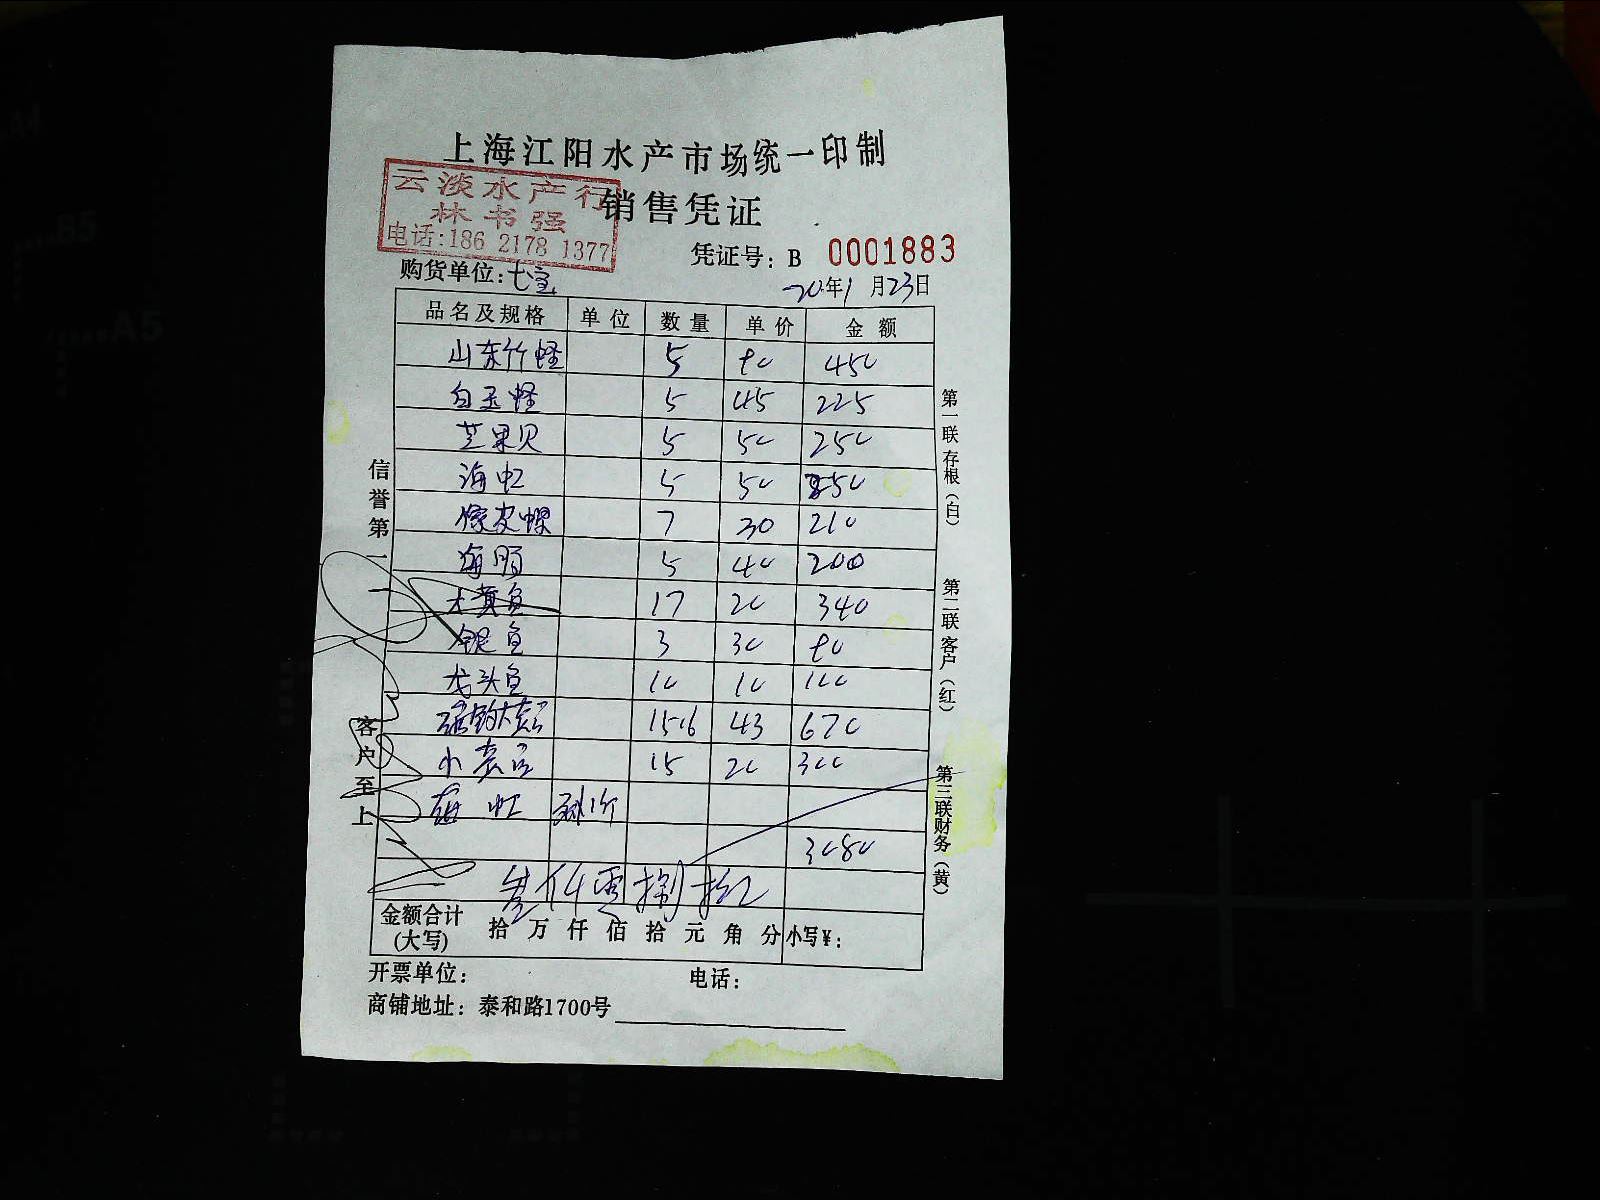 上海江阳水产市场统一印制
云淡水产行
林书强
电话:186 2178 1377
销售凭证
凭证号: B 0001883
购货单位:七宝
20年1月23日
品名及规格 单位 数量 单价 金额
山东竹蛏 5 90 450
白玉蛏 5 45 225
芒果贝 5 50 250
海虹 5 50 250
像皮螺 7 30 210
海肠 5 40 200
大黄鱼 17 20 340
银鱼 3 30 90
10 10 100
15.6 43 670
小 15 20 300
海虹
3080
叁仟零捌拾
金额合计(大写) 拾 万 仟 佰 拾 元 角 分 小写¥:
开票单位: 电话:
商铺地址: 泰和路1700号
信誉第一
客户至上
第一联存根(白)
第二联客户(红)
第三联财务(黄)